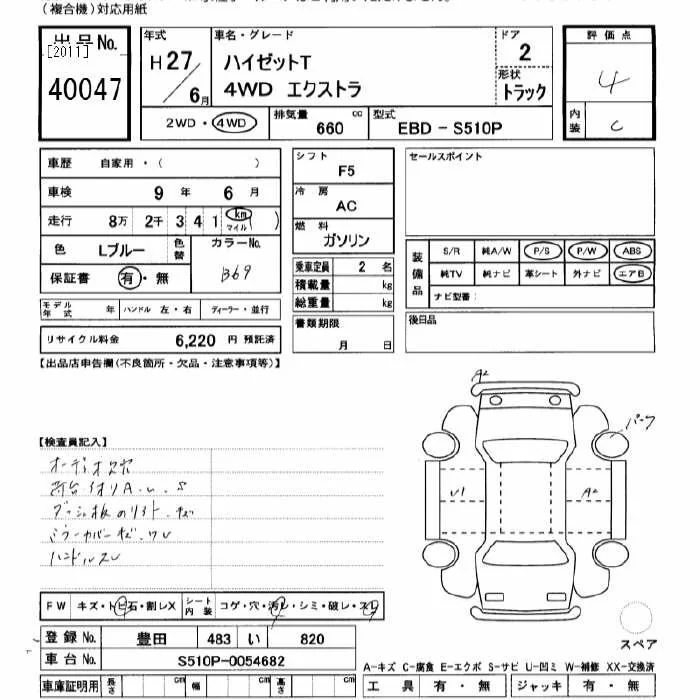 (複合機)対応用紙
出品No.
[2011]
40047
年式
H27/6月
車名・グレード
ハイゼットT
4WD エクストラ
ドア
2
形状
トラック
評価点
4
内装
C
2WD・4WD
排気量
660 cc
型式
EBD - S510P
車歴 自家用・( )
車検 9年 6月
走行 8万 2千 3 4 1 km マイル )
色 Lブルー 色替 カラーNo.
B69
保証書 有・無
モデル年式 年 ハンドル 左・右 ディーラー・並行
リサイクル料金 6,220 円 預託済
シフト
F5
冷房
AC
燃料
ガソリン
乗車定員 2 名
積載量 kg
総重量 kg
書類期限
月 日
セールスポイント
装備品
S/R 純A/W P/S P/W ABS
純TV 純ナビ 革シート 外ナビ エアB
ナビ型番:
後日品
【出品店申告欄(不良箇所・欠品・注意事項等)】
【検査員記入】
オーディオ欠
ミラーカバーキズ・ワレ
ハンドルスレ
A2
パーク
U1
A2
スペア
FW キズ・トビ石・割レX シート内装 コゲ・穴・汚レ・シミ・破レ・スレ
登録No. 豊田 483 い 820
車台No. S510P-0054682
車庫証明用 長さ cm 幅 cm 高さ cm
A-キズ C-腐食 E-エクボ S-サビ U-凹ミ W-補修 XX-交換済
工具 有・無 ジャッキ 有・無